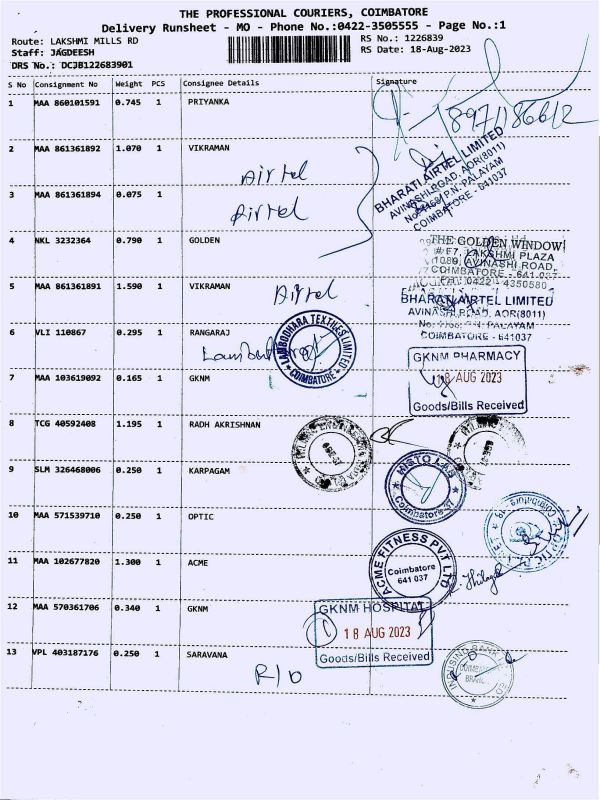 THE PROFESSIONAL COURIERS, COIMBATORE
Delivery Runsheet - MO - Phone No.:0422-3505555 - Page No.:1
Route: LAKSHMI MILLS RD
RS No.: 1226839
Staff: JAGDEESH
RS Date: 18-Aug-2023
DRS No.: DCJB122683901
S No Consignment No Weight PCS Consignee Details Signature
1 MAA 860101591 0.745 1 PRIYANKA
2 MAA 861361892 1.070 1 VIKRAMAN
Airtel
BHARATI AIRTEL LIMITED
AVINASHI ROAD, AOR(8011)
P.N. PALAYAM
COIMBATORE - 641037
3 MAA 861361894 0.075 1
Airtel
4 NKL 3232364 0.790 1 GOLDEN
THE GOLDEN WINDOW
# F7, LAKSHMI PLAZA
1089, AVINASHI ROAD,
COIMBATORE - 641 037
0422 - 4350580
5 MAA 861361891 1.590 1 VIKRAMAN
Airtel
BHARATI AIRTEL LIMITED
AVINASHI ROAD, AOR(8011)
P.N. PALAYAM
COIMBATORE - 641037
6 VLI 110867 0.295 1 RANGARAJ
LAMBODHARA TEXTILES LIMITED
COIMBATORE
7 MAA 103619092 0.165 1 GKNM
GKNM PHARMACY
18 AUG 2023
Goods/Bills Received
8 TCG 40592408 1.195 1 RADH AKRISHNAN
9 SLM 326468006 0.250 1 KARPAGAM
HISTO LAB
Coimbatore-37
10 MAA 571539710 0.250 1 OPTIC
11 MAA 102677820 1.300 1 ACME
ACME FITNESS PVT LTD
Coimbatore
641 037
12 MAA 570361706 0.340 1 GKNM
GKNM HOSPITAL
18 AUG 2023
Goods/Bills Received
13 VPL 403187176 0.250 1 SARAVANA
R/O